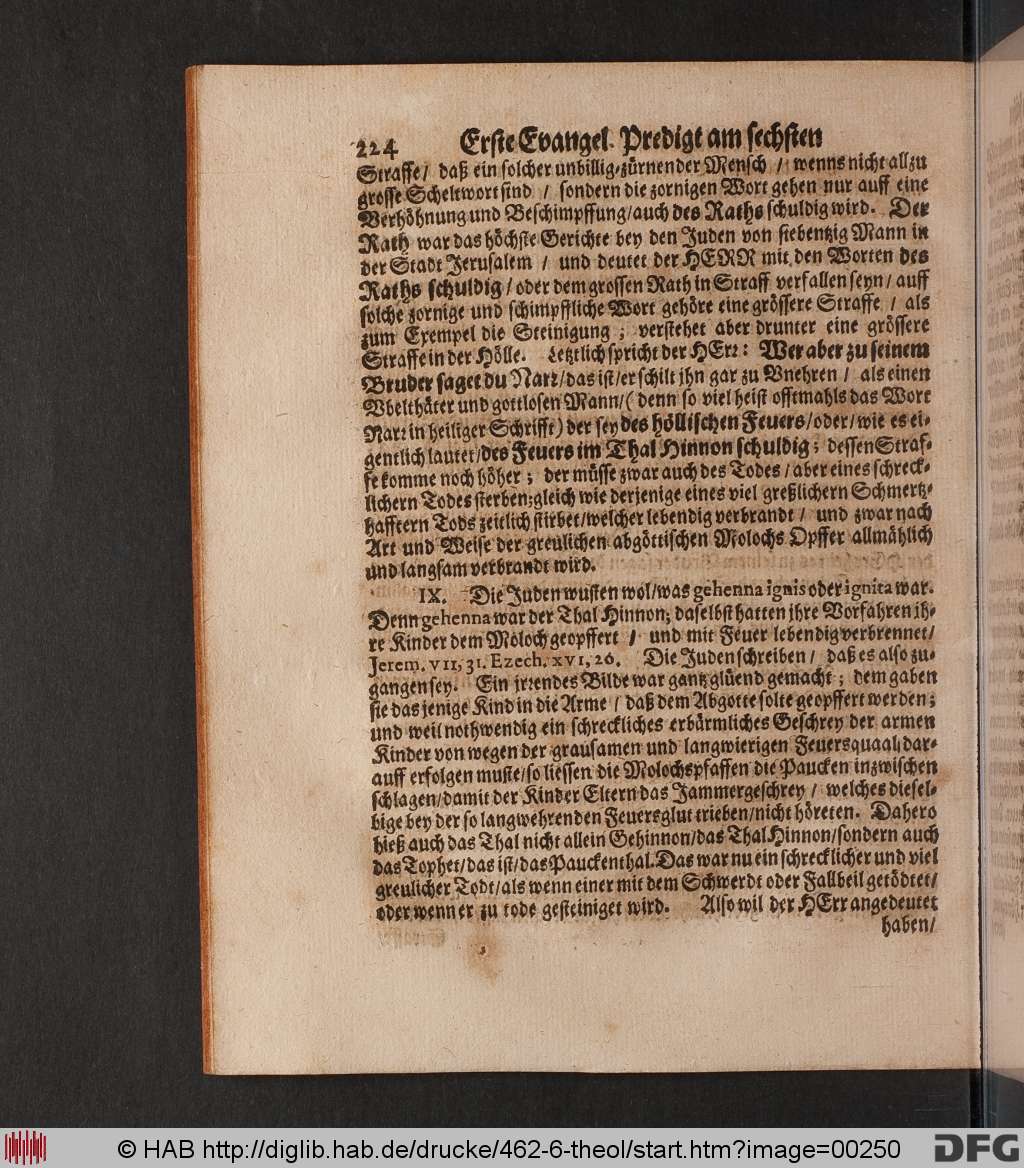 224 Erste Evangel. Predigt am sechsten
Straffe/ daß ein solcher unbillig-zürnender Mensch / wenns nicht allzu
grosse Scheltwort sind / sondern die zornigen Wort gehen nur auff eine
Verhöhnung und Beschimpffung/auch des Raths schuldig wird. Der
Rath war das höchste Gerichte bey den Juden von siebentzig Mann in
der Stadt Jerusalem / und deutet der HERR mit den Worten des
Raths schuldig/ oder dem grossen Rath in Straff verfallen seyn/ auff
solche zornige und schimpffliche Wort gehöre eine grössere Straffe / als
zum Exempel die Steinigung ; verstehet aber drunter eine grössere
Straffe in der Hölle. Letztlich spricht der HErr: Wer aber zu seinem
Bruder saget du Narr/das ist/er schilt jhn gar zu Vnehren / als einen
Vbelthäter und gottlosen Mann/( denn so viel heist offtmahls das Wort
Narr in heiliger Schrifft) der sey des höllischen Feuers/oder/wie es ei-
gentlich lautet/des Feuers im Thal Hinnon schuldig; dessen Straf-
fe komme noch höher; der müsse zwar auch des Todes / aber eines schreck-
lichern Todes sterben;gleich wie derjenige eines viel greßlichern Schmertz-
hafftern Tods zeitlich stirbet/welcher lebendig verbrandt / und zwar nach
Art und Weise der greulichen abgöttischen Molochs Opffer allmählich
und langsam verbrandt wird.
IX. Die Juden wusten wol/was gehenna ignis oder ignita war.
Denn gehenna war der Thal Hinnon; daselbst hatten jhre Vorfahren jh-
re Kinder dem Moloch geopffert / und mit Feuer lebendig verbrennet/
Jerem. VII, 31. Ezech. XVI, 20. Die Juden schreiben / daß es also zu-
gangen sey. Ein jrrendes Bilde war gantz glüend gemacht; dem gaben
sie das jenige Kind in die Arme / daß dem Abgotte solte geopffert werden;
und weil nothwendig ein schreckliches erbärmliches Geschrey der armen
Kinder von wegen der grausamen und langwierigen Feuersquaal dar-
auff erfolgen muste/so liessen die Molochspfaffen die Paucken inzwischen
schlagen/damit der Kinder Eltern das Jammergeschrey / welches diesel-
bige bey der so langwehrenden Feuersglut trieben/nicht höreten. Dahero
hieß auch das Thal nicht allein Gehinnon/das Thal Hinnon/sondern auch
das Tophet/das ist/das Pauckenthal. Das war nu ein schrecklicher und viel
greulicher Todt/als wenn einer mit dem Schwerdt oder Fallbeil getödtet/
oder wenn er zu tode gesteiniget wird. Also wil der HErr angedeutet
haben/
© HAB http://diglib.hab.de/drucke/462-6-theol/start.htm?image=00250
DFG